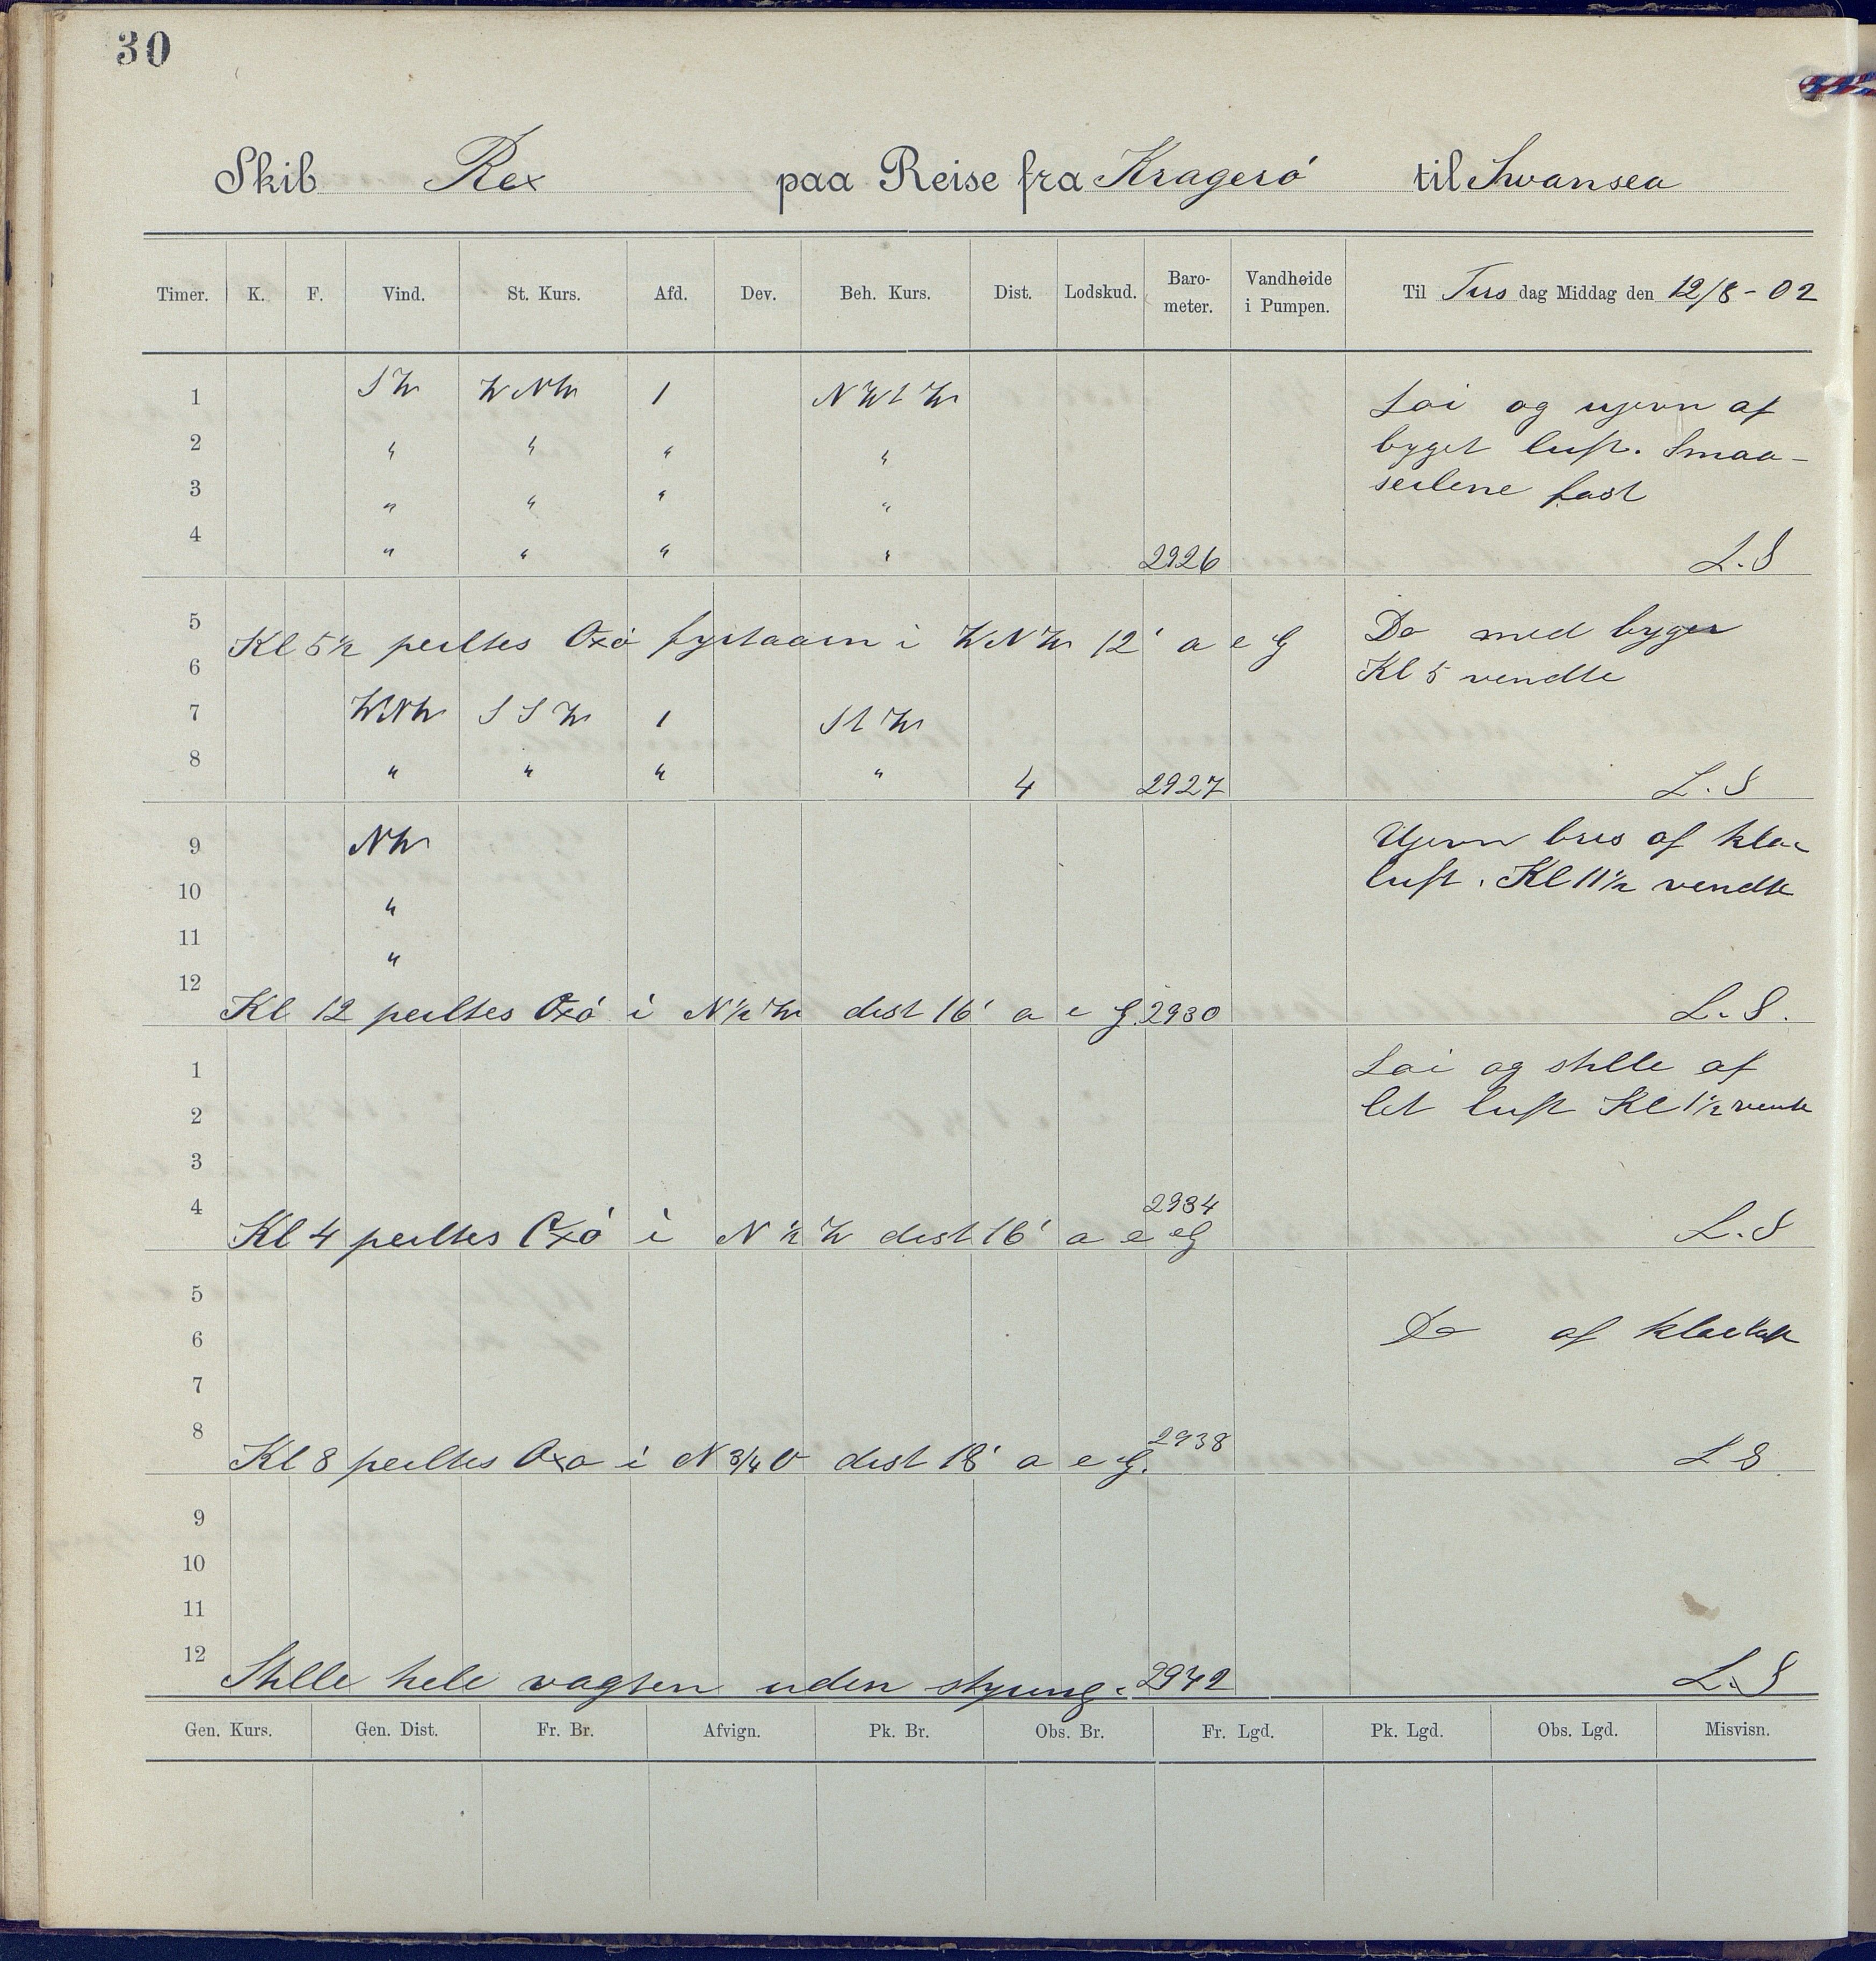 30
Skib Rex paa Reise fra Kragerö til Swansea
Timer. K. F. Vind. St. Kurs. Afd. Dev. Beh. Kurs. Dist. Lodskud. Baro-meter. Vandhøide i Pumpen. Til Tirs dag Middag den 12/8 - 02
1 SW WNW 1 NWtW Löi og ujevn af
2 " " " " byget luft. Smaa-
3 " " " " seilene fast
4 " " " " 2926 L.S
5 Do med byger
Kl 5½ peiltes Oxö fyrtaarn i WNW 12' a e G
6 Kl 5 vendte
7 WNW SSW 1 StW
8 " " " " 4 2927 L.S
9 NW Ujevn bris af klar
10 " luft. Kl 11½ vendte
11 "
12 Kl 12 peiltes Oxö i N½W dist 16' a e G. 2930 L.S.
1 Löi og stille af
2 let luft Kl 1½ vendte
3
4 2934
Kl 4 peiltes Oxö i N½W dist 16' a e G L.S
5
6 Do af klar luft
7
8 2938
Kl 8 peiltes Oxö i N 3/4 O dist 18' a e G. L S.
9
10
11
12 Stille hele vagten uden styring. 2942 L.S
Gen. Kurs. Gen. Dist. Fr. Br. Afvign. Pk. Br. Obs. Br. Fr. Lgd. Pk. Lgd. Obs. Lgd. Misvisn.